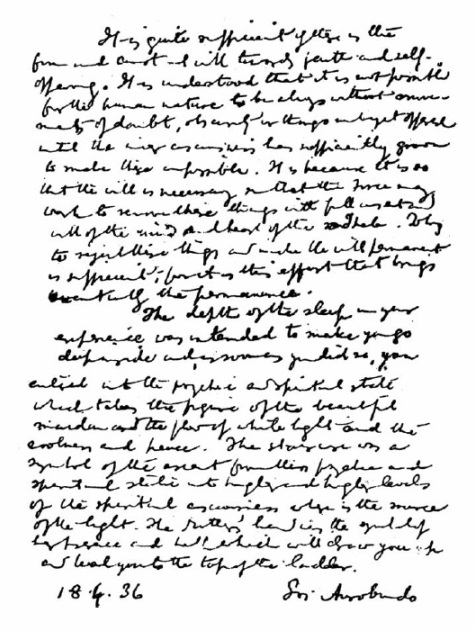 It is quite sufficient if there is the
firm and constant will towards faith and self-
offering. It is understood that it is not possible
for the human nature to be always without move-
ments of doubt, obscurity or things not yet offered
until the inner consciousness has sufficiently grown
to make these impossible. It is because it is so
that the will is necessary so that the Force may
work to remove these things with full assent and
will of the mind and heart of the sadhaka. To try
to reject these things and make the will permanent
is sufficient, for it is this effort that brings
eventually the permanence.
The depth of the sleep in your
experience was intended to make you go
deep inside and as soon as you did so, you
entered into the psychic and spiritual state
which takes the figure of the beautiful
maidan and the flow of white light and the
coolness and peace. The staircase was a
symbol of the ascent from this psychic and
spiritual state into higher and higher levels
of the spiritual consciousness where is the source
of the light. The Mother's hand is the symbol of
her presence and help which will draw you up
and lead you to the top of the ladder.
18.4.36 Sri Aurobindo